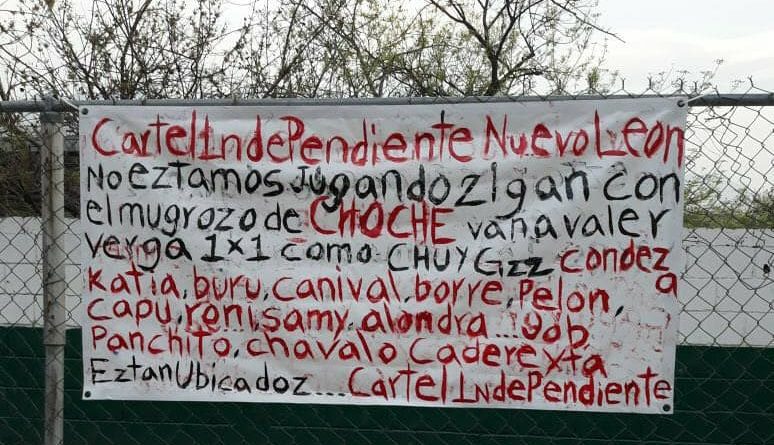 CartelIndePendiente NuevoLeon
No eztamos Jugandozigan con
el mugrozo de CHOCHE van a valer
verga 1x1 como CHUY Gzz condeza
Katia, buru, canival, borre, Pelon,
capu, roni, samy, alondra... gob
Panchito, chavalo Caderexta
EztanUbicadoz... CartelIndePendiente